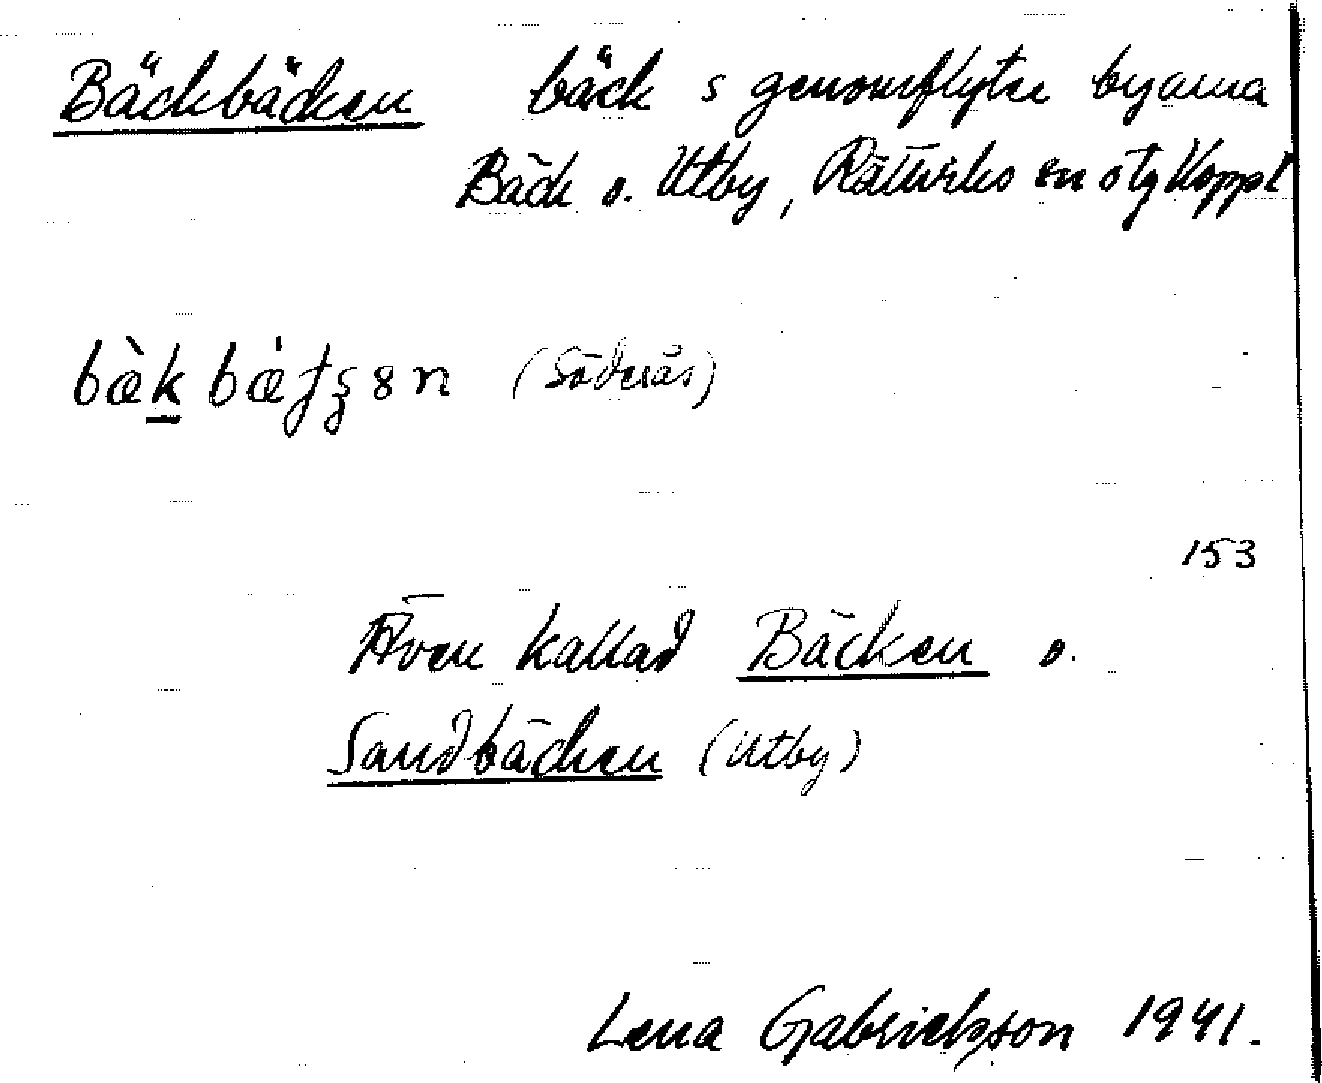 Bäckbäcken bäck s genomflyter byarna
Bäck o. Utby, Rättviks sn o tg Koppl
bæ̀k bæ̀ (Söderås)
153
Även kallad Bäcken o.
Sandbäcken (Utby)
Lena Gabrielsson 1941.